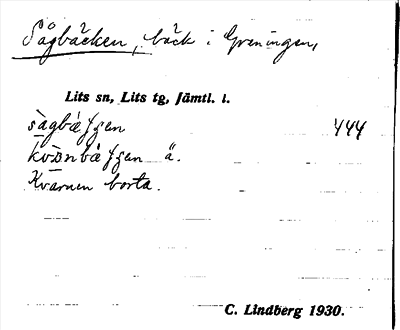 Sågbäcken, bäck i Greningen,
Lits sn, Lits tg, Jämtl. l.
444
ä.
Kvarnen borta.
C. Lindberg 1930.